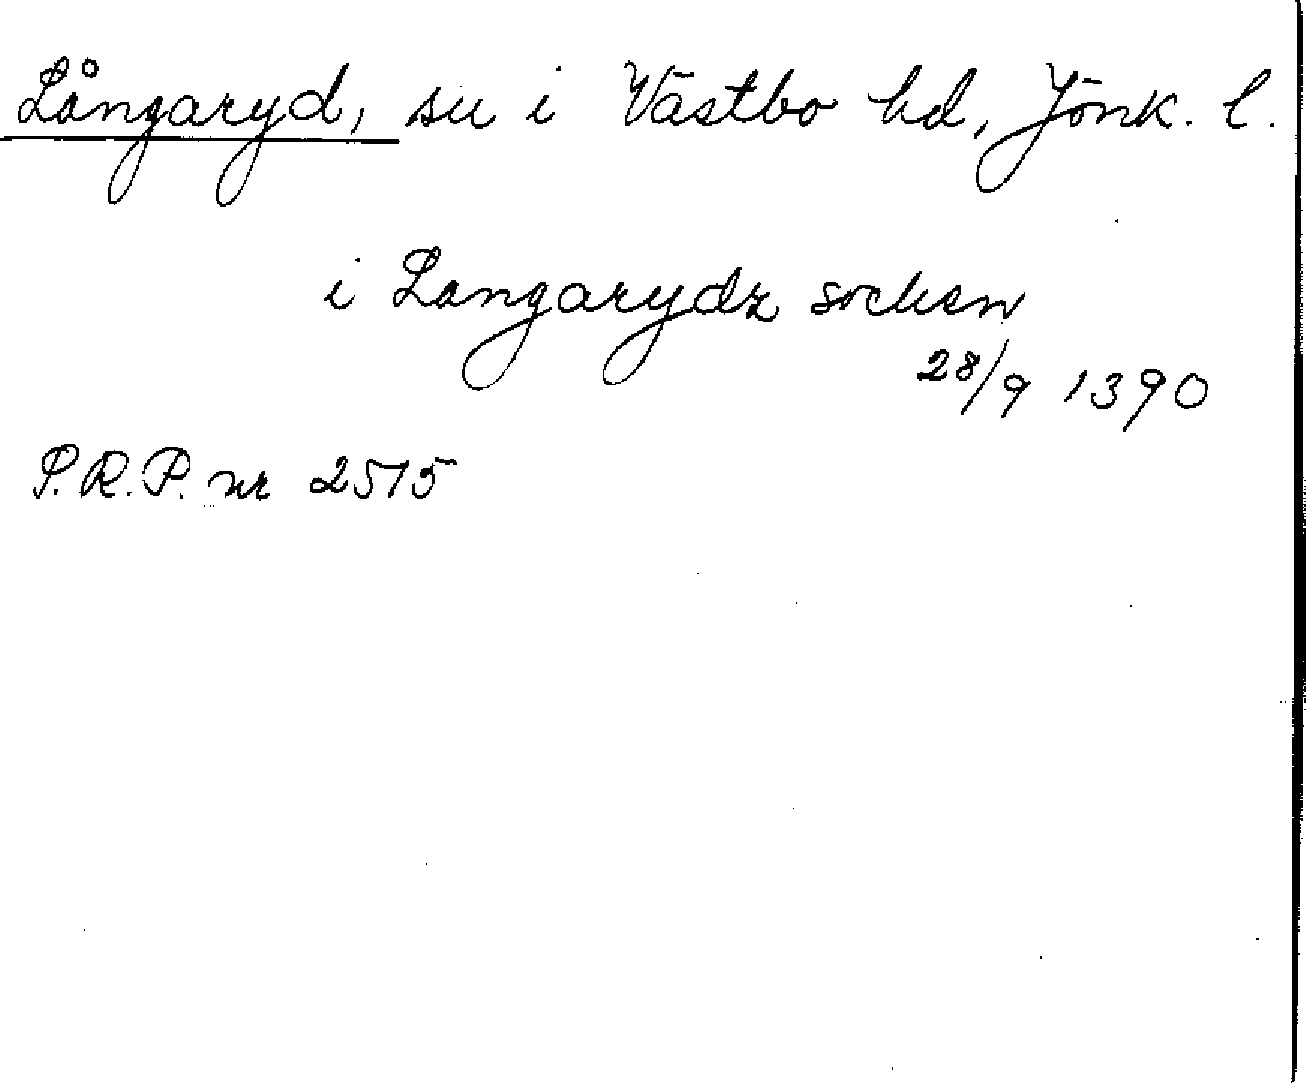 Långaryd, sn i Västbo hd, Jönk. l.
i Langarydz socken
28/9 1390
S.R.P. nr 2515